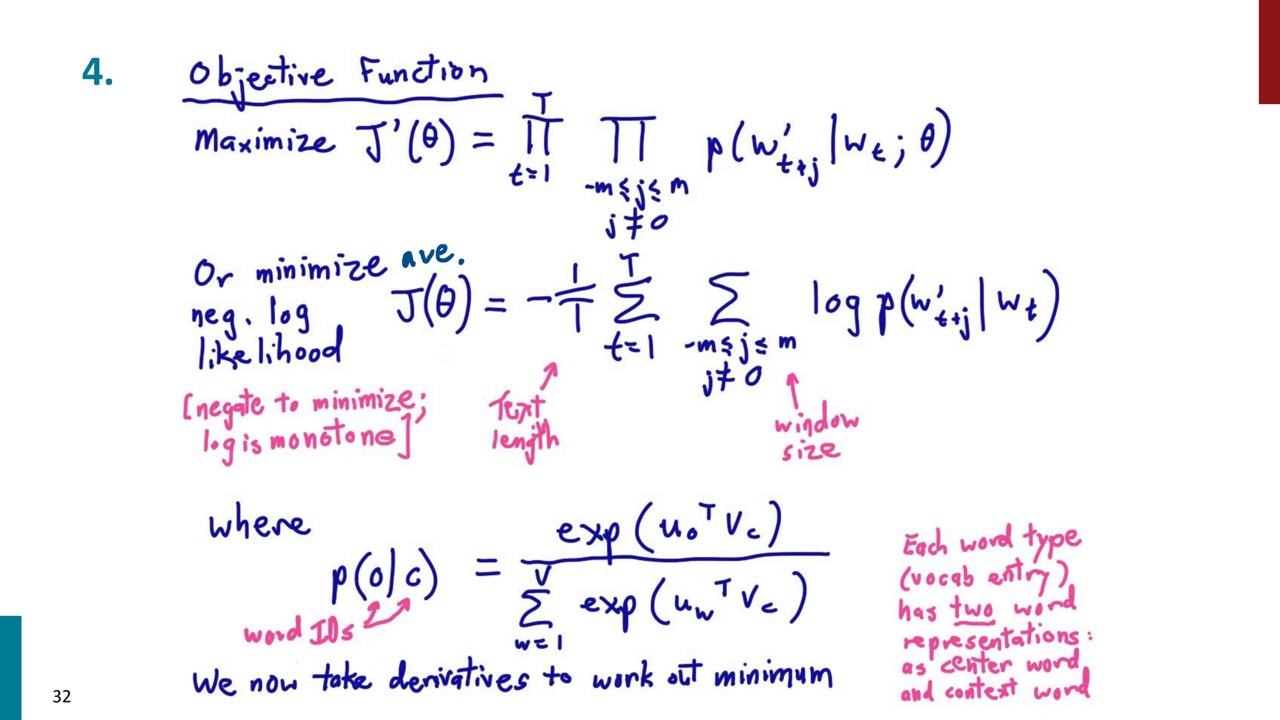 4.
Objective Function
Maximize J'(θ) = ∏_{t=1}^{T} ∏_{-m≤j≤m, j≠0} p(w'_{t+j} | w_t ; θ)
Or minimize ave.
neg. log
likelihood
J(θ) = - 1/T ∑_{t=1}^{T} ∑_{-m≤j≤m, j≠0} log p(w'_{t+j} | w_t)
[negate to minimize;
log is monotone]
Text
length
window
size
where
p(o|c) = exp(u_o^T v_c) / ∑_{w=1}^{V} exp(u_w^T v_c)
word IDs
Each word type
(vocab entry)
has two word
representations:
as center word
and context word
We now take derivatives to work out minimum
32